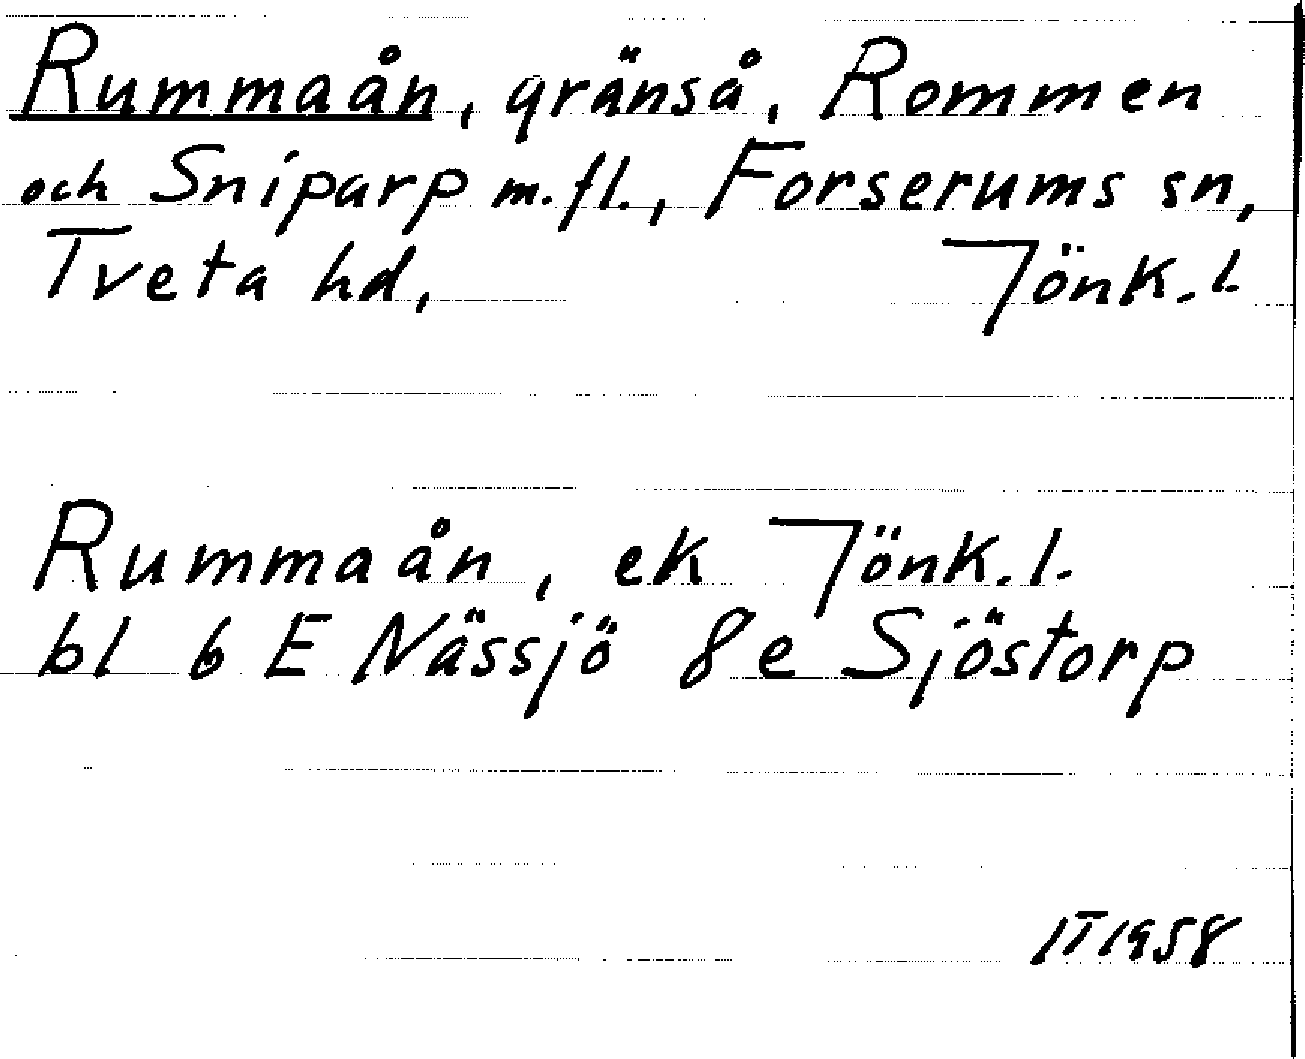 Rummaån, gränså, Rommen
och Sniparp m.fl., Forserums sn,
Tveta hd, Jönk.l.
Rummaån, ek Jönk.l.
bl 6 E Nässjö 8e Sjöstorp
IT 1958